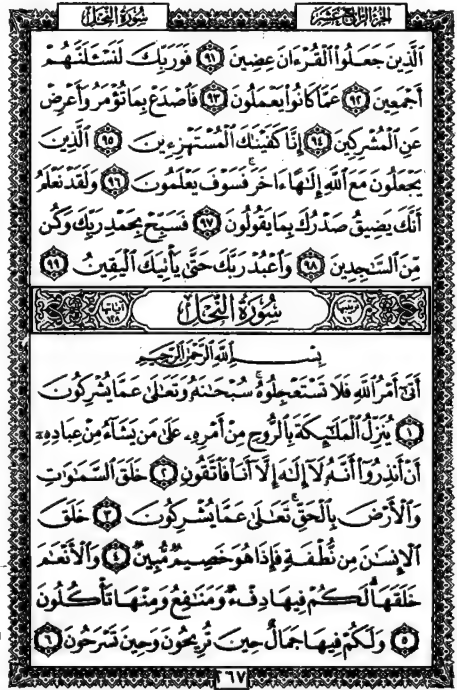 سُورَةُ النَّحْلِ
الجُزْءُ الرَّابِعَ عَشَرَ
الَّذِينَ جَعَلُوا الْقُرْءَانَ عِضِينَ ﴿٩١﴾ فَوَرَبِّكَ لَنَسْـَٔلَنَّهُمْ
أَجْمَعِينَ ﴿٩٢﴾ عَمَّا كَانُوا يَعْمَلُونَ ﴿٩٣﴾ فَاصْدَعْ بِمَا تُؤْمَرُ وَأَعْرِضْ
عَنِ الْمُشْرِكِينَ ﴿٩٤﴾ إِنَّا كَفَيْنَاكَ الْمُسْتَهْزِءِينَ ﴿٩٥﴾ الَّذِينَ
يَجْعَلُونَ مَعَ اللَّهِ إِلَـٰهًا ءَاخَرَ ۚ فَسَوْفَ يَعْلَمُونَ ﴿٩٦﴾ وَلَقَدْ نَعْلَمُ
أَنَّكَ يَضِيقُ صَدْرُكَ بِمَا يَقُولُونَ ﴿٩٧﴾ فَسَبِّحْ بِحَمْدِ رَبِّكَ وَكُن
مِّنَ السَّـٰجِدِينَ ﴿٩٨﴾ وَاعْبُدْ رَبَّكَ حَتَّىٰ يَأْتِيَكَ الْيَقِينُ ﴿٩٩﴾
ترتيبها ١٦ سُورَةُ النَّحْلِ آياتها ١٢٨
بِسْمِ اللَّهِ الرَّحْمَٰنِ الرَّحِيمِ
أَتَىٰٓ أَمْرُ اللَّهِ فَلَا تَسْتَعْجِلُوهُ ۚ سُبْحَـٰنَهُۥ وَتَعَـٰلَىٰ عَمَّا يُشْرِكُونَ
﴿١﴾ يُنَزِّلُ الْمَلَـٰٓئِكَةَ بِالرُّوحِ مِنْ أَمْرِهِۦ عَلَىٰ مَن يَشَآءُ مِنْ عِبَادِهِۦٓ
أَنْ أَنذِرُوٓا أَنَّهُۥ لَآ إِلَـٰهَ إِلَّآ أَنَا فَاتَّقُونِ ﴿٢﴾ خَلَقَ السَّمَـٰوَٰتِ
وَالْأَرْضَ بِالْحَقِّ ۚ تَعَـٰلَىٰ عَمَّا يُشْرِكُونَ ﴿٣﴾ خَلَقَ
الْإِنسَـٰنَ مِن نُّطْفَةٍ فَإِذَا هُوَ خَصِيمٌ مُّبِينٌ ﴿٤﴾ وَالْأَنْعَـٰمَ
خَلَقَهَا ۗ لَكُمْ فِيهَا دِفْءٌ وَمَنَـٰفِعُ وَمِنْهَا تَأْكُلُونَ
﴿٥﴾ وَلَكُمْ فِيهَا جَمَالٌ حِينَ تُرِيحُونَ وَحِينَ تَسْرَحُونَ ﴿٦﴾
٢٦٧